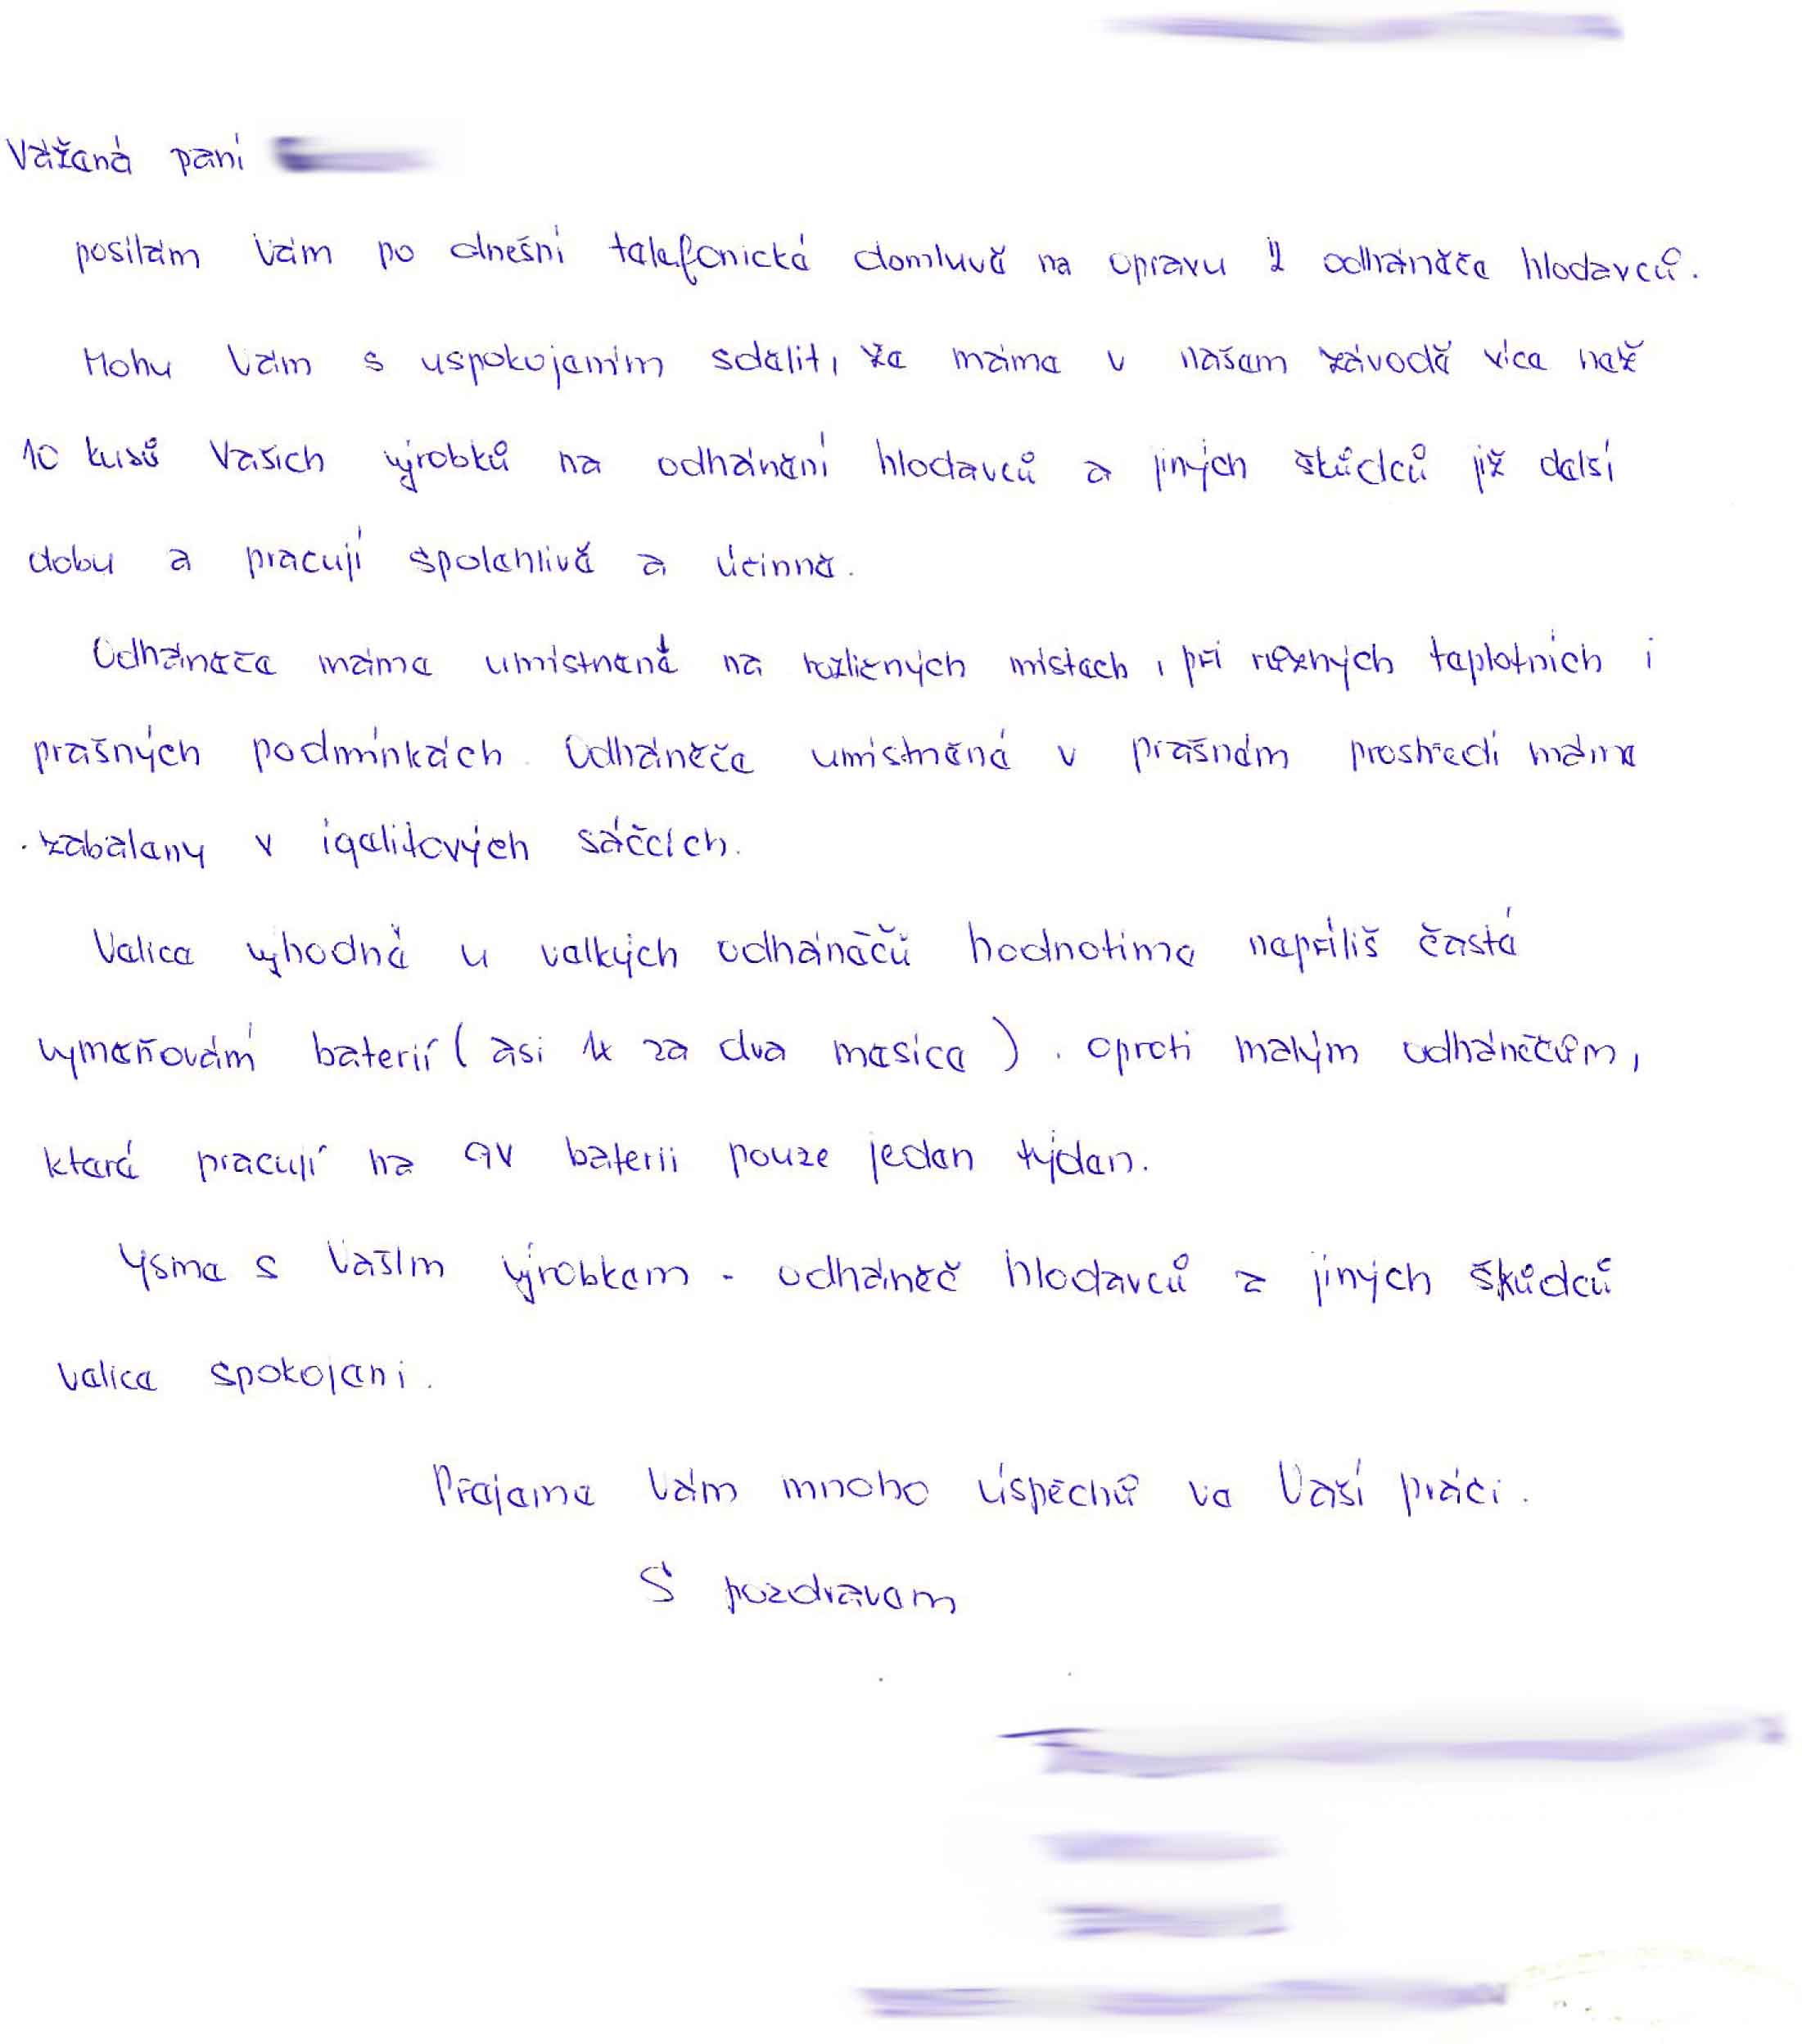 Vážená paní
posílám Vám po dnešní telefonické domluvě na opravu 2 odháněče hlodavců.
Mohu Vám s uspokojením sdělit, že máme v našem závodě více než
10 kusů Vašich výrobků na odhánění hlodavců a jiných škůdců již delší
dobu a pracují spolehlivě a účinně.
Odháněče máme umístněné na rozličných místech, při různých teplotních i
prašných podmínkách. Odháněče umístněné v prašném prostředí máme
zabaleny v igelitových sáčcích.
Velice výhodné u velkých odháněčů hodnotíme nepříliš časté
vyměňování baterií (asi 1x za dva měsíce). oproti malým odháněčům,
které pracují na 9V baterii pouze jeden týden.
Ysme s Vaším výrobkem - odháněč hlodavců a jiných škůdců
velice spokojeni.
Přejeme Vám mnoho úspěchů ve Vaší práci.
S pozdravem